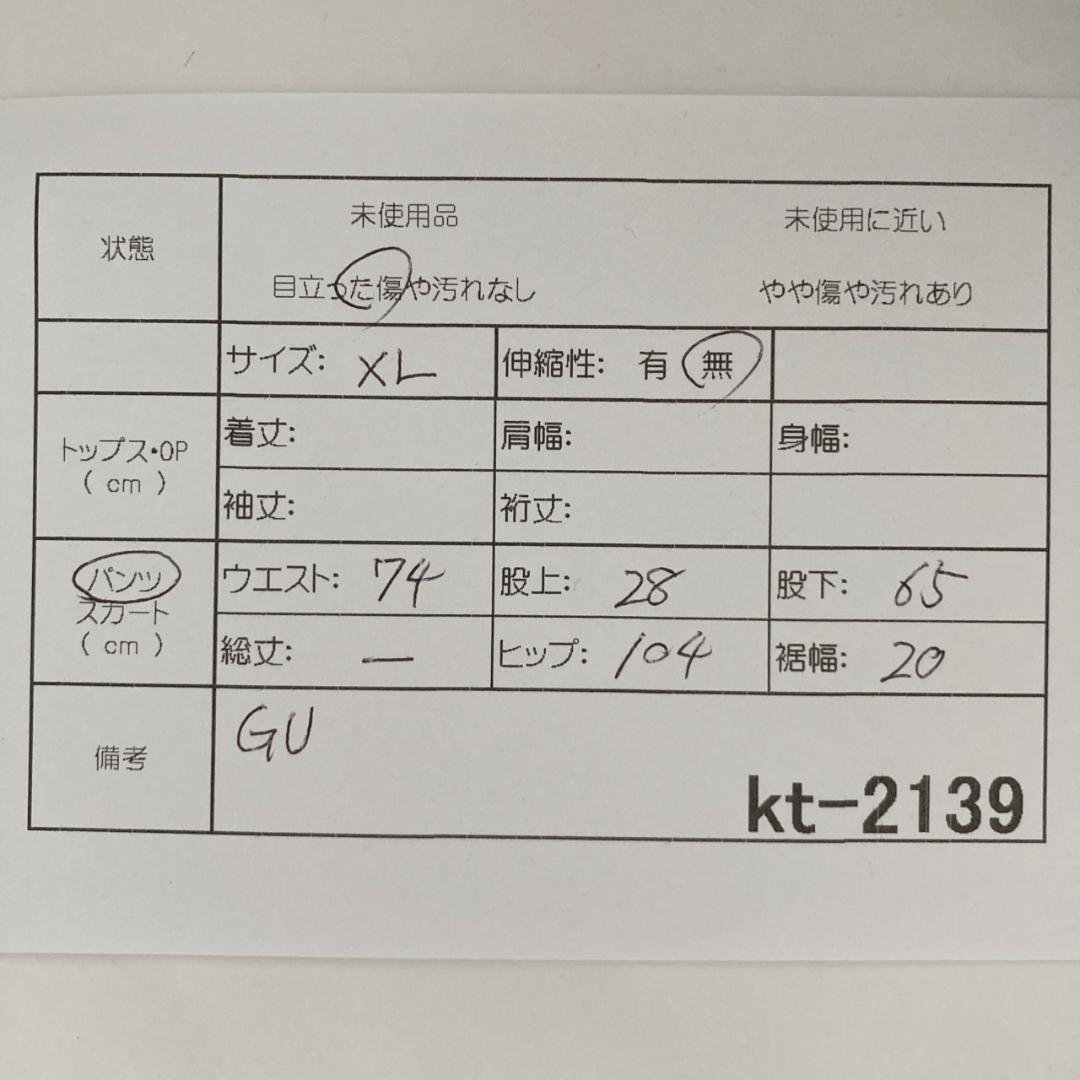 状態
未使用品 未使用に近い
目立った傷や汚れなし やや傷や汚れあり
サイズ: XL 伸縮性: 有 無
トップス・OP
( cm )
着丈: 肩幅: 身幅:
袖丈: 裄丈:
パンツ
スカート
( cm )
ウエスト: 74 股上: 28 股下: 65
総丈: — ヒップ: 104 裾幅: 20
備考
GU
kt-2139